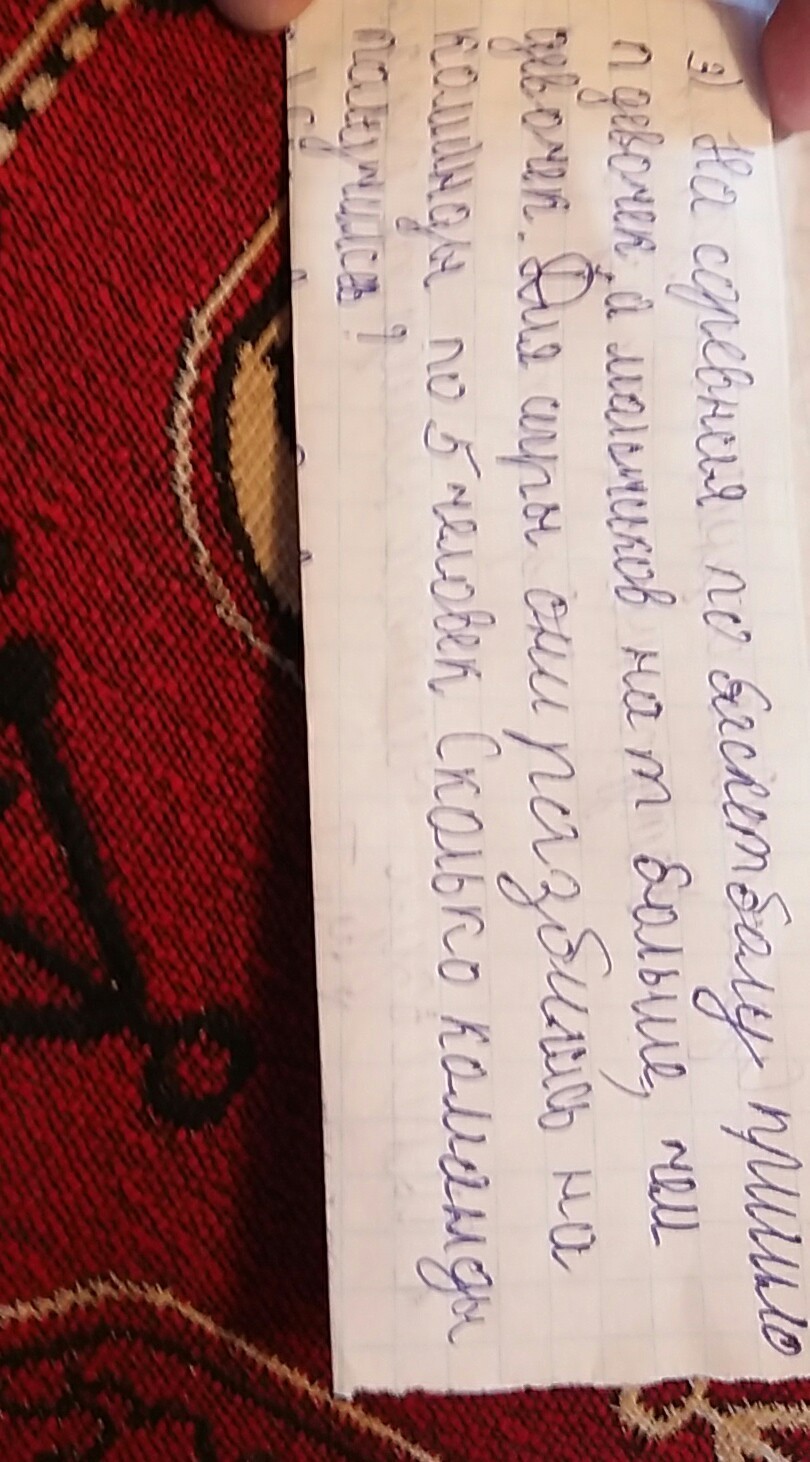 э) На соревная по баскетболу пришло
п девочек, а мальчиков на т больше, чем
девочек. Для игры они разбились на
команды по 5 человек Сколько команды
палучился?